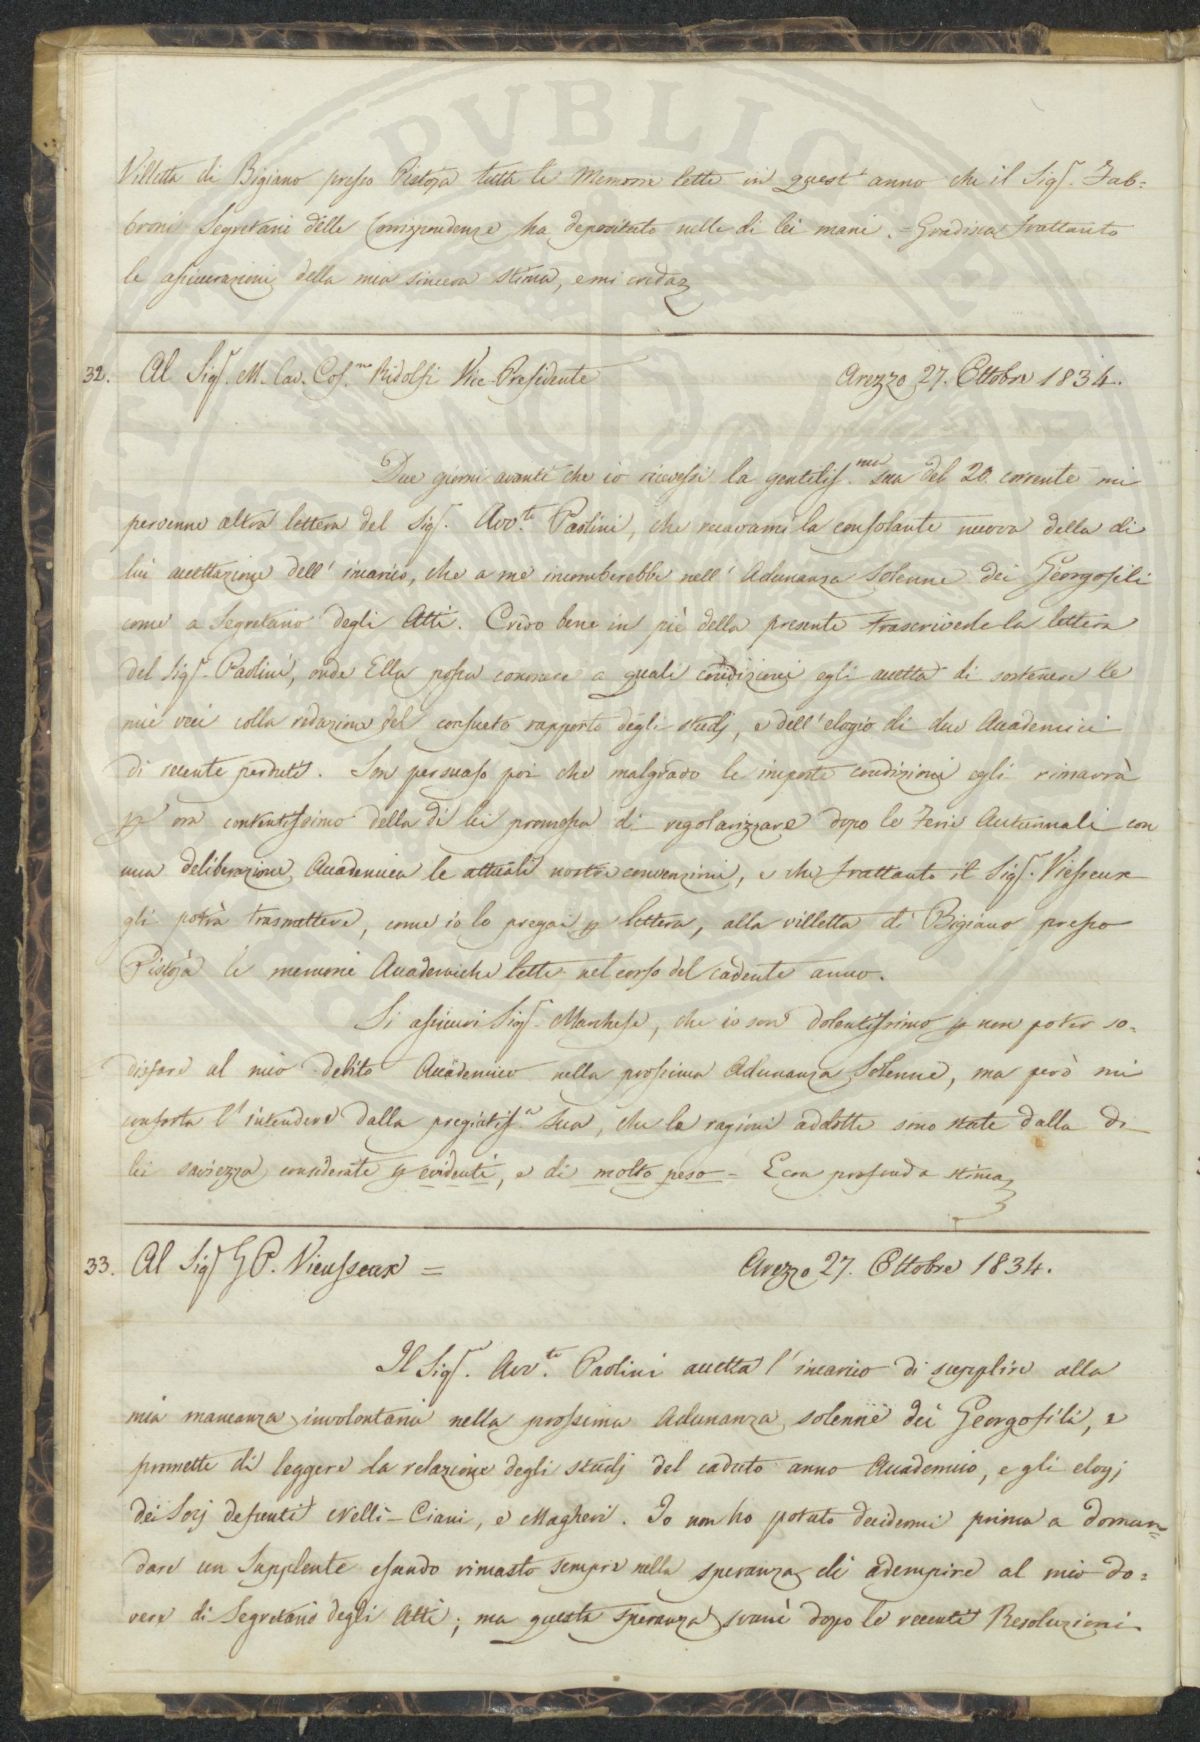 Villetta di Bigiano presso Pistoja tutte le Memorie lette in quest'anno che il Sig.r Fab=
broni Segretario delle Corrispondenze ha depositato nelle di lei mani. = Gradisca frattanto
le assicurazioni della mia sincera stima, e mi creda
32. Al Sig.r M. Cav. Cos.mo Ridolfi Vice-Presidente Arezzo 27. Ottobre 1834.
Due giorni avanti che io ricevessi la gentilis.ma sua del 20. corrente mi
pervenne altra lettera del Sig.r Avv.to Paolini, che recavami la consolante nuova della di
lui accettazione dell'incarico, che a me incomberebbe nell'Adunanza Solenne dei Georgofili
come a Segretario degli Atti. Credo bene in piè della presente trascriverle la lettera
del Sig.r Paolini, onde Ella possa conoscere a quali condizioni egli accetta di sostenere le
mie veci colla redazione del consueto rapporto degli studj, e dell'elogio di due Accademici
di recente perduti. Son persuaso poi che malgrado le imposte condizioni egli rimarrà
p ora contentissimo della di lei promessa di regolarizzare dopo le Ferie Autunnali con
una deliberazione Accademica le attuali nostre convenzioni, e che frattanto il Sig.r Viesseux
gli potrà trasmettere, come io lo pregai p lettera, alla villetta di Bigiano presso
Pistoja le memorie Accademiche lette nel corso del cadente anno.
Si assicuri Sig.r Marchese, che io son dolentissimo p non poter so=
disfare al mio debito Accademico nella prossima Adunanza Solenne, ma però mi
conforta l'intendere dalla pregiatis.a sua, che le ragioni addotte sono state dalla di
lei saviezza considerate p evidenti, e di molto peso = E con profonda stima
33. Al Sig.r G P. Vieusseux = Arezzo 27. Ottobre 1834.
Il Sig.r Avv.to Paolini accetta l'incarico di supplire alla
mia mancanza involontaria nella prossima Adunanza solenne dei Georgofili, e
promette di leggere la relazione degli studj del caduto anno Accademico, e gli elogj
dei Socj defunti Nelli-Ciani, e Magheri. Io non ho potuto decidermi prima a doman=
dare un Supplente essendo rimasto sempre nella speranza di adempire al mio do=
vere di Segretario degli Atti; ma questa speranza svanì dopo le recenti Resoluzioni